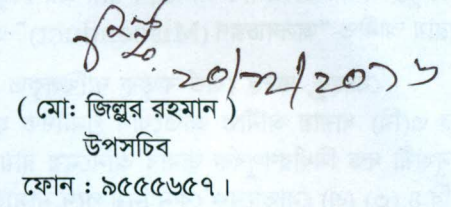 ২০/১২/২০১৬
( মো: জিল্লুর রহমান )
উপসচিব
ফোন : ৯৫৫৫৬৫৭।